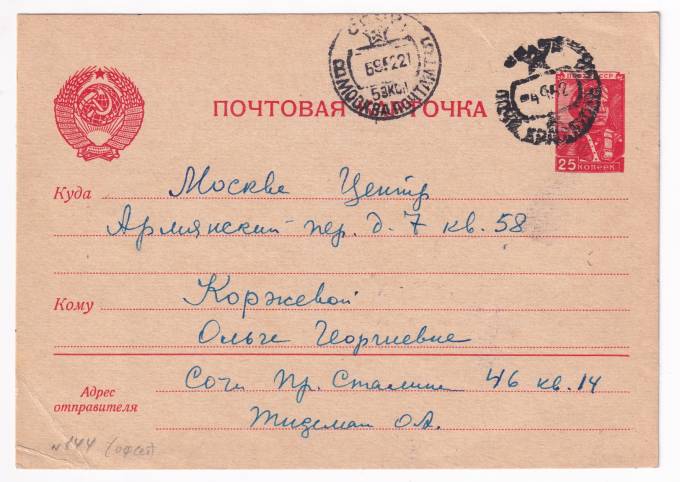 ПОЧТОВАЯ КАРТОЧКА
25 КОПЕЕК
Куда Москва Центр
Армянский пер. д. 7 кв. 58
Кому Коржевой
Ольге Георгиевне
Адрес отправителя
Сочи Пр. Сталина 46 кв. 14
Тидеман О.А.
№ 144 (офсет)
МОСКВА ПОЧТАМТ